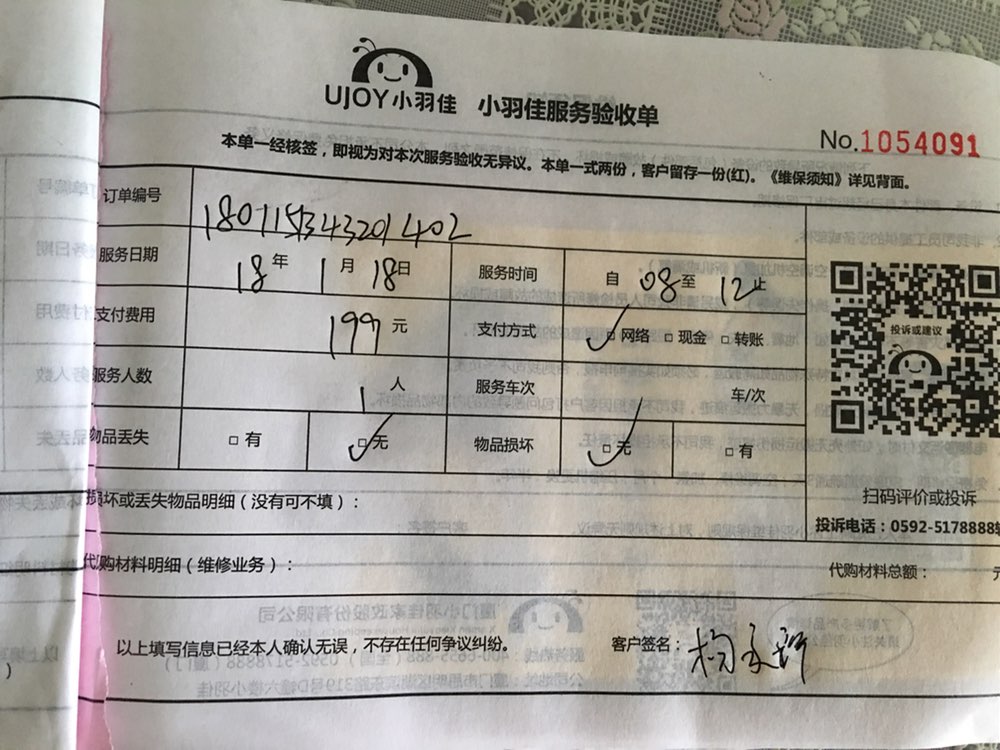 UJOY小羽佳 小羽佳服务验收单
No.1054091
本单一经核签，即视为对本次服务验收无异议。本单一式两份，客户留存一份(红)。《维保须知》详见背面。
订单编号 180115343201402
服务日期 18年 1月 18日 服务时间 自 08 至 12 止
支付费用 199元 支付方式 □网络 □现金 □转账
投诉或建议
服务人数 1人 服务车次 车/次
物品丢失 □有 □无 物品损坏 □无 □有
扫码评价或投诉
损坏或丢失物品明细（没有可不填）：
投诉电话：0592-5178888
代购材料明细（维修业务）： 代购材料总额： 元
以上填写信息已经本人确认无误，不存在任何争议纠纷。 客户签名：